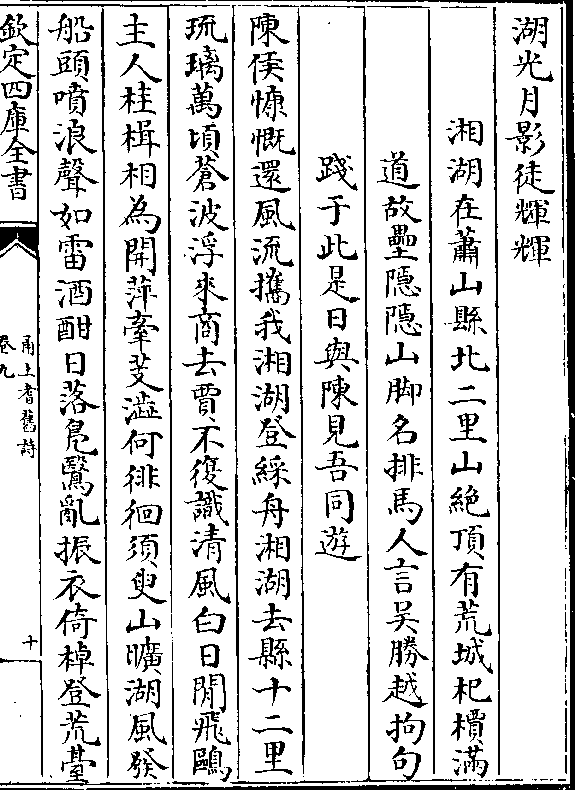 湖光月影徒輝輝
湘湖在蕭山縣北二里山絶頂有荒城杞檟滿
道故壘隱隱山脚名排馬人言吴勝越拘句
踐于此是日與陳見吾同遊
陳侯慷慨還風流攜我湘湖登綵舟湘湖去縣十二里
琉璃萬頃蒼波浮來商去賈不復識清風白日閒飛鷗
主人桂楫相為開萍牽芰澁何徘徊須臾山曠湖風發
船頭噴浪聲如雷酒酣日落鳬鷖亂振衣倚棹登荒臺
欽定四庫全書
甬上耆舊詩
卷九
十